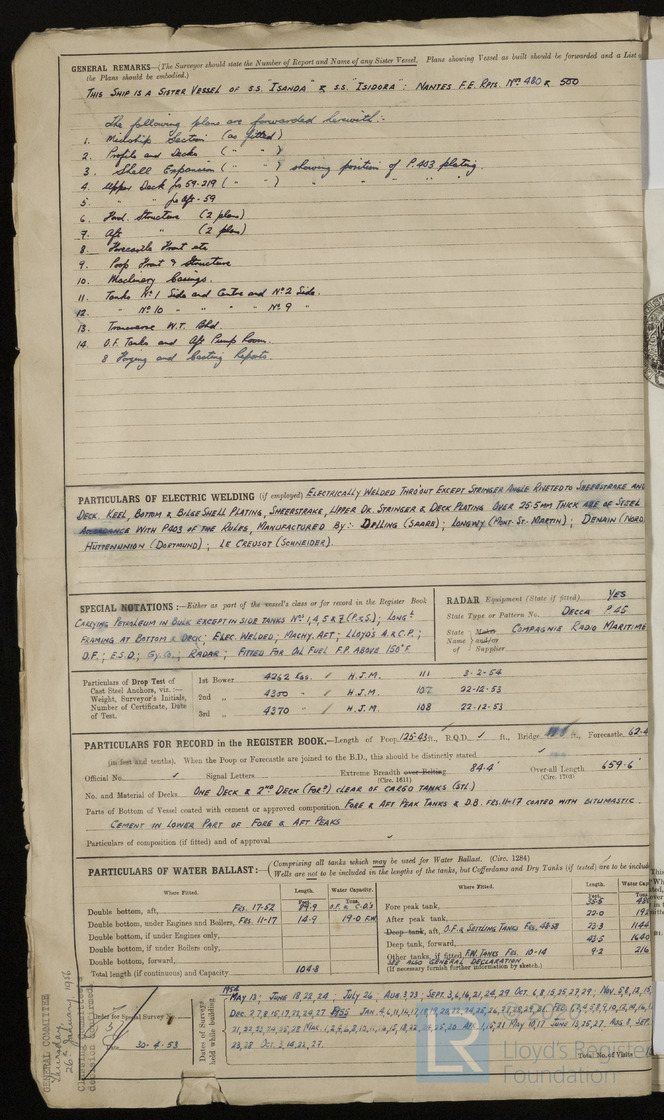 GENERAL REMARKS—(The Surveyor should state the Number of Report and Name of any Sister Vessel. Plans showing Vessel as built should be forwarded and a List
the Plans should be embodied.)
THIS SHIP IS A SISTER VESSEL OF S.S. "ISANDA" & S.S. "ISIDORA": NANTES F.E. RPTS. Nos 480 & 500
The following plans are forwarded herewith:-
1. Midship Section (as fitted)
2. Profile and Decks ( " " )
3. Shell Expansion ( " " ) shewing position of P.403 plating.
4. Upper Deck frs 59-219 ( " " ) " " " " "
5. " " fr aft-59
6. Ford. Structure (2 plans)
7. Aft " (2 plans)
8. Forecastle Front etc
9. Poop Front & Structure
10. Machinery Casings.
11. Tanks No 1 Side and Centre and No 2 Side.
12. " No 10 " " " No 9 "
13. Transverse W.T. Bhd.
14. O.F. Tanks and Aft Pump Room.
8 Forging and Casting Reports.
PARTICULARS OF ELECTRIC WELDING (if employed) ELECTRICALLY WELDED THRO'OUT EXCEPT STRINGER ANGLE RIVETED TO SHEERSTRAKE AND
DECK. KEEL, BOTTOM & BILGE SHELL PLATING, SHEERSTRAKE, UPPER DK. STRINGER & DECK PLATING OVER 25.5MM THICK OF STEEL
ACCORDANCE WITH P403 OF THE RULES, MANUFACTURED BY:- DILLING (SAARE); LONGWY (MONT-ST-MARTIN); DENAIN (NORD
HÜTTENUNION (DORTMUND); LE CREUSOT (SCHNEIDER).
SPECIAL NOTATIONS:—Either as part of the vessel's class or for record in the Register Book
CARRYING PETROLEUM IN BULK EXCEPT IN SIDE TANKS Nos 1, 4, 5 & 7 (P&S); LONGL
FRAMING AT BOTTOM & DECK; ELEC. WELDED; MACHY. AFT; LLOYD'S A & C.P.;
D.F.; E.S.D.; Gy.C.; RADAR; FITTED FOR OIL FUEL F.P. ABOVE 150°F.
RADAR Equipment (State if fitted) YES
State Type or Pattern No. DECCA P.45
State Name of Maker and/or Supplier COMPAGNIE RADIO MARITIME
Particulars of Drop Test of Cast Steel Anchors, viz.:— Weight, Surveyor's Initials, Number of Certificate, Date of Test.
1st Bower 4262 KGS. ✓ H.J.M. 111 3-2-54
2nd " 4350 " ✓ H.J.M. 107 22-12-53
3rd " 4370 " ✓ H.J.M. 108 22-12-53
PARTICULARS FOR RECORD in the REGISTER BOOK.—Length of Poop 125.43 ft., R.Q.D. ✓ ft., Bridge ft., Forecastle 62.4
(in feet and tenths). When the Poop or Forecastle are joined to the B.D., this should be distinctly stated ✓
Official No. ✓ Signal Letters Extreme Breadth over Belting (Circ. 1611) 84.4' Over-all Length (Circ. 1703) 659.6'
No. and Material of Decks ONE DECK & 2ND DECK (FORD) CLEAR OF CARGO TANKS (STL)
Parts of Bottom of Vessel coated with cement or approved composition FORE & AFT PEAK TANKS & D.B. FRS. 11-17 COATED WITH BITUMASTIC.
CEMENT IN LOWER PART OF FORE & AFT PEAKS
Particulars of composition (if fitted) and of approval ✓
PARTICULARS OF WATER BALLAST:—(Comprising all tanks which may be used for Water Ballast. (Circ. 1284)
Wells are not to be included in the lengths of the tanks, but Cofferdams and Dry Tanks (if tested) are to be include
Where Fitted. Length. Feet. Water Capacity. Tons.
Double bottom, aft, FRS. 17-52 89.9 O.F. & C.D's
Double bottom, under Engines and Boilers, FRS. 11-17 14.9 19.0 F.W.
Double bottom, if under Engines only,
Double bottom, if under Boilers only,
Double bottom, forward,
Total length (if continuous) and Capacity 104.8
Where Fitted. Length. Feet. Water Cap Tons
Fore peak tank, 35.5
After peak tank, 22.0
Deep tank, aft, O.F. & SETTLING TANKS FRS. 48-58 23.3 1144
Deep tank, forward, 43.5 1640
Other tanks, if fitted F.W. TANKS FRS. 10-14 9.2 216
SEE ALSO GENERAL DECLARATION
(If necessary furnish further information by sketch.)
GENERAL COMMITTEE
Thursday,
26th January 1956
Order for Special Survey No.
Date 30-4-53
Dates of Surveys held while building
1954
MAY 13; JUNE 18, 22, 24; JULY 26; AUG. 3, 23; SEPT. 3, 6, 16, 21, 24, 29 OCT. 6, 8, 15, 25, 27, 29; NOV. 5, 8, 12, 15,
DEC. 2, 7, 8, 15, 17, 22, 24, 27. 1955 JAN. 4, 6, 11, 14, 17, 18, 19, 20,
23, 28 OCT. 3, 14, 22, 27.
Total No. of Visits
© 2020
LR
Lloyd's Register
Foundation